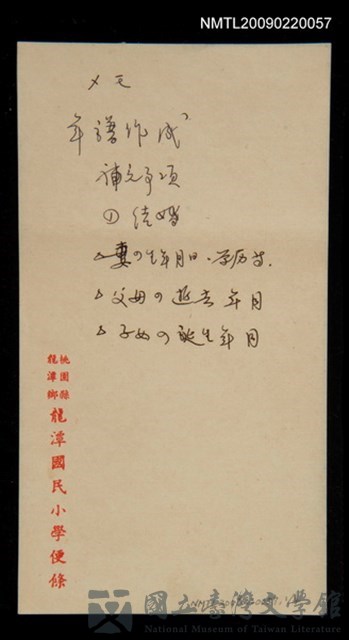 NMTL20090220057
メモ
年譜作成
補充事項
① 結婚
△妻の生年月日、学历等.
△父母の逝去年月
△子女の誕生年月
桃園縣
龍潭鄉
龍潭國民小學便條
國立臺灣文學館
National Museum of Taiwan Literature